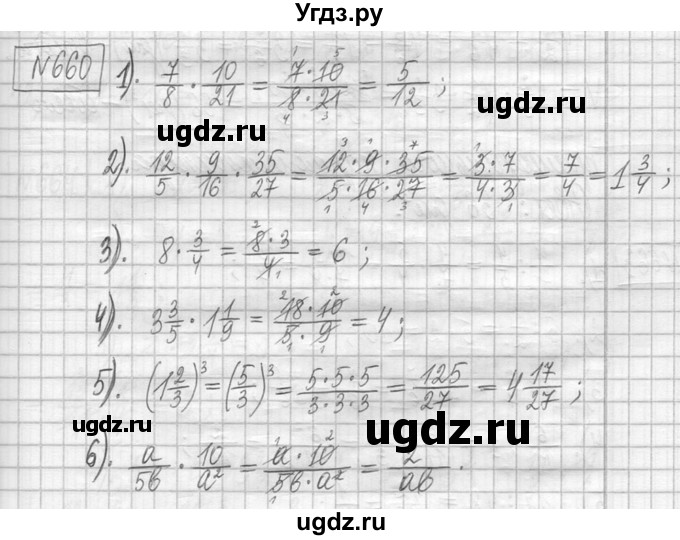 Угдз.ру
№660 1). 7/8 · 10/21 = 7·10/8·21 = 5/12 ;
ugdz.ru ugdz.ru
2). 12/5 · 9/16 · 35/27 = 12·9·35/5·16·27 = 3·7/4·3 = 7/4 = 1 3/4 ;
3). 8 · 3/4 = 8·3/4 = 6 ;
ugdz.ru
4). 3 3/5 · 1 1/9 = 18·10/5·9 = 4 ;
5). (1 2/3)³ = (5/3)³ = 5·5·5/3·3·3 = 125/27 = 4 17/27 ;
ugdz.ru
6). a/5b · 10/a² = a·10/5b·a² = 2/ab .
ugdz.ru